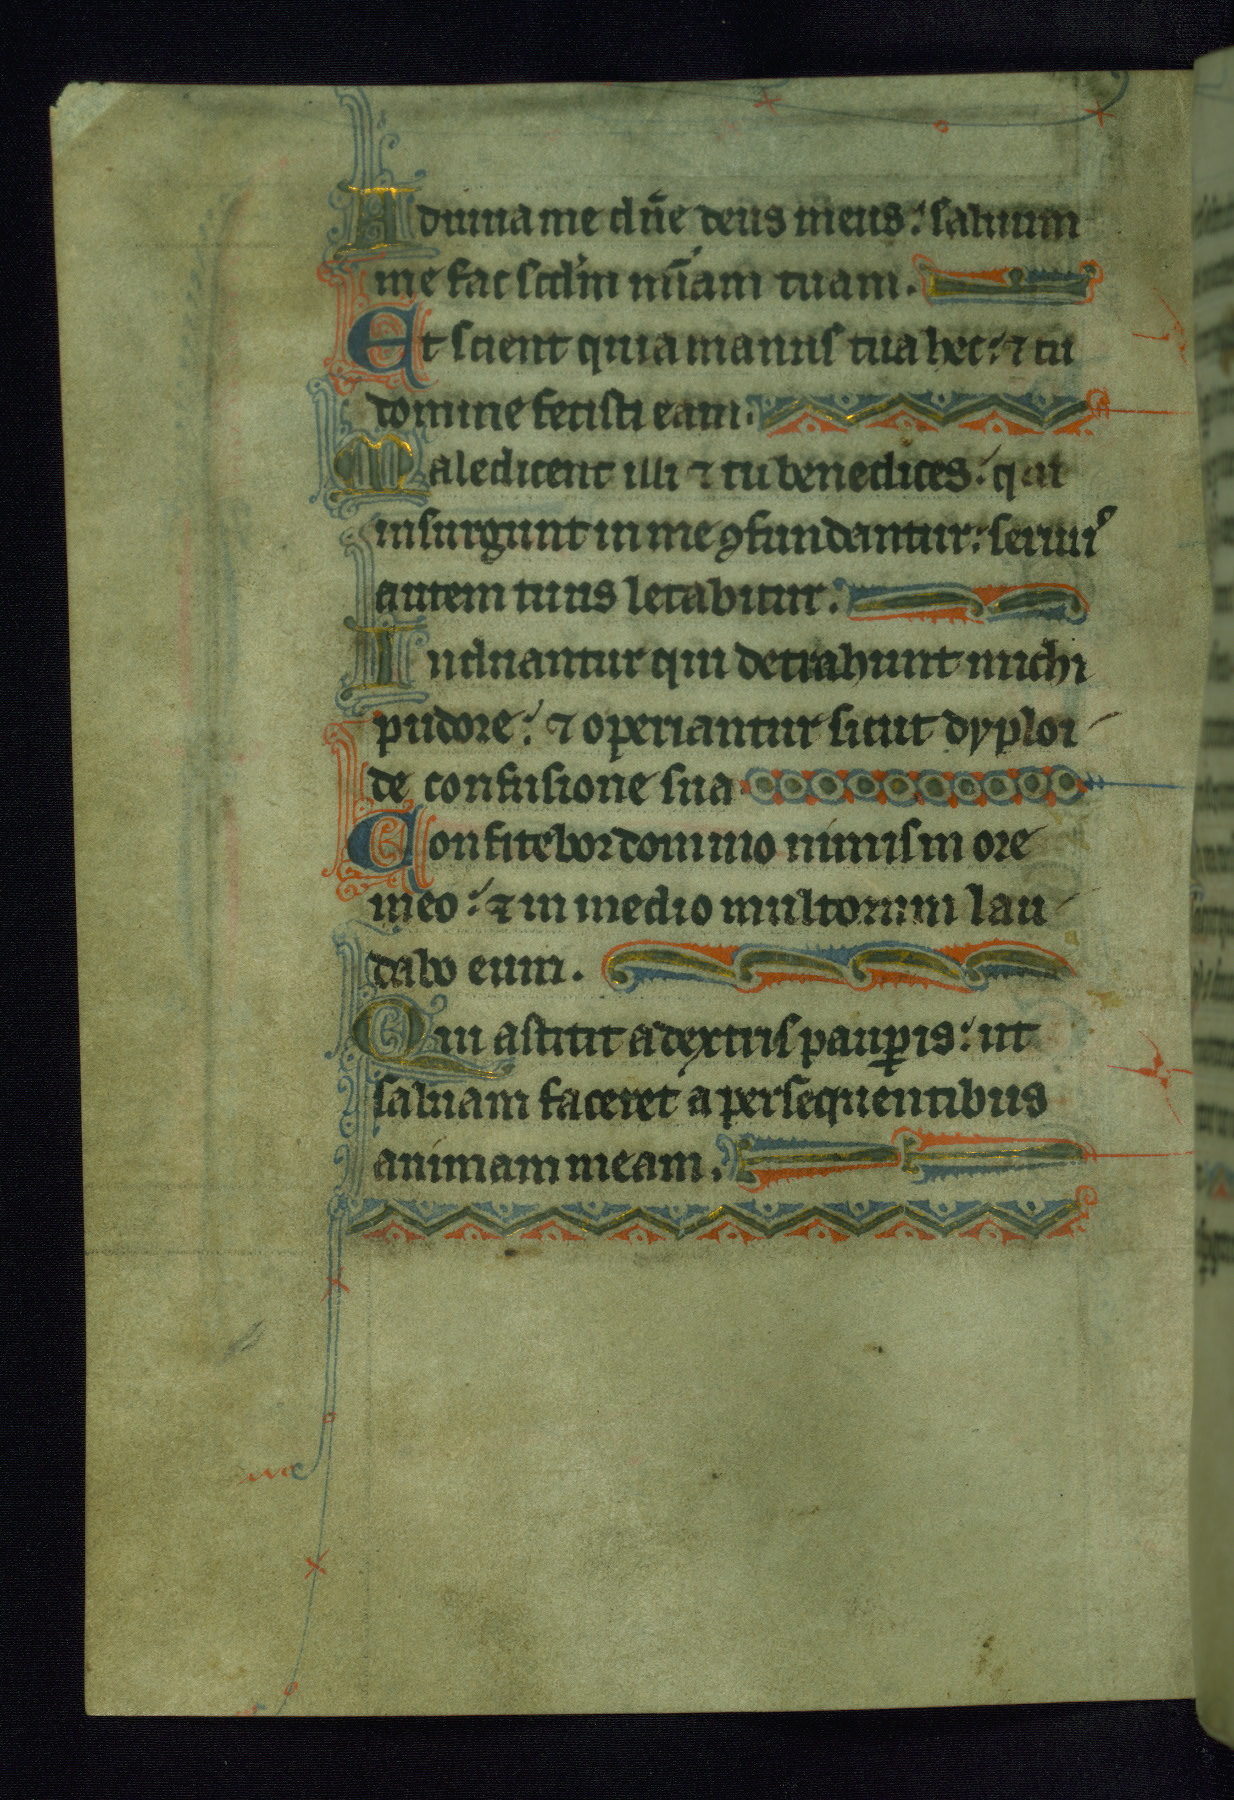 Adiuua me dn̄e deus meus: saluum
me fac scd̄m mīam tuam.
Et scient quia manus tua hec: ⁊ tu
domine fecisti eam.
Maledicent illi ⁊ tu benedices: qui
insurgunt in me ꝯfundantur: seruuꝰ
autem tuus letabitur.
Induantur qui detrahunt michi
pudore: ⁊ operiantur sicut dyploi
de confusione sua
Confitebor domino nimis in ore
meo: ⁊ in medio multorum lau
dabo eum.
Qui astitit a dextris pauꝑis: ut
saluam faceret a persequentibus
animam meam.